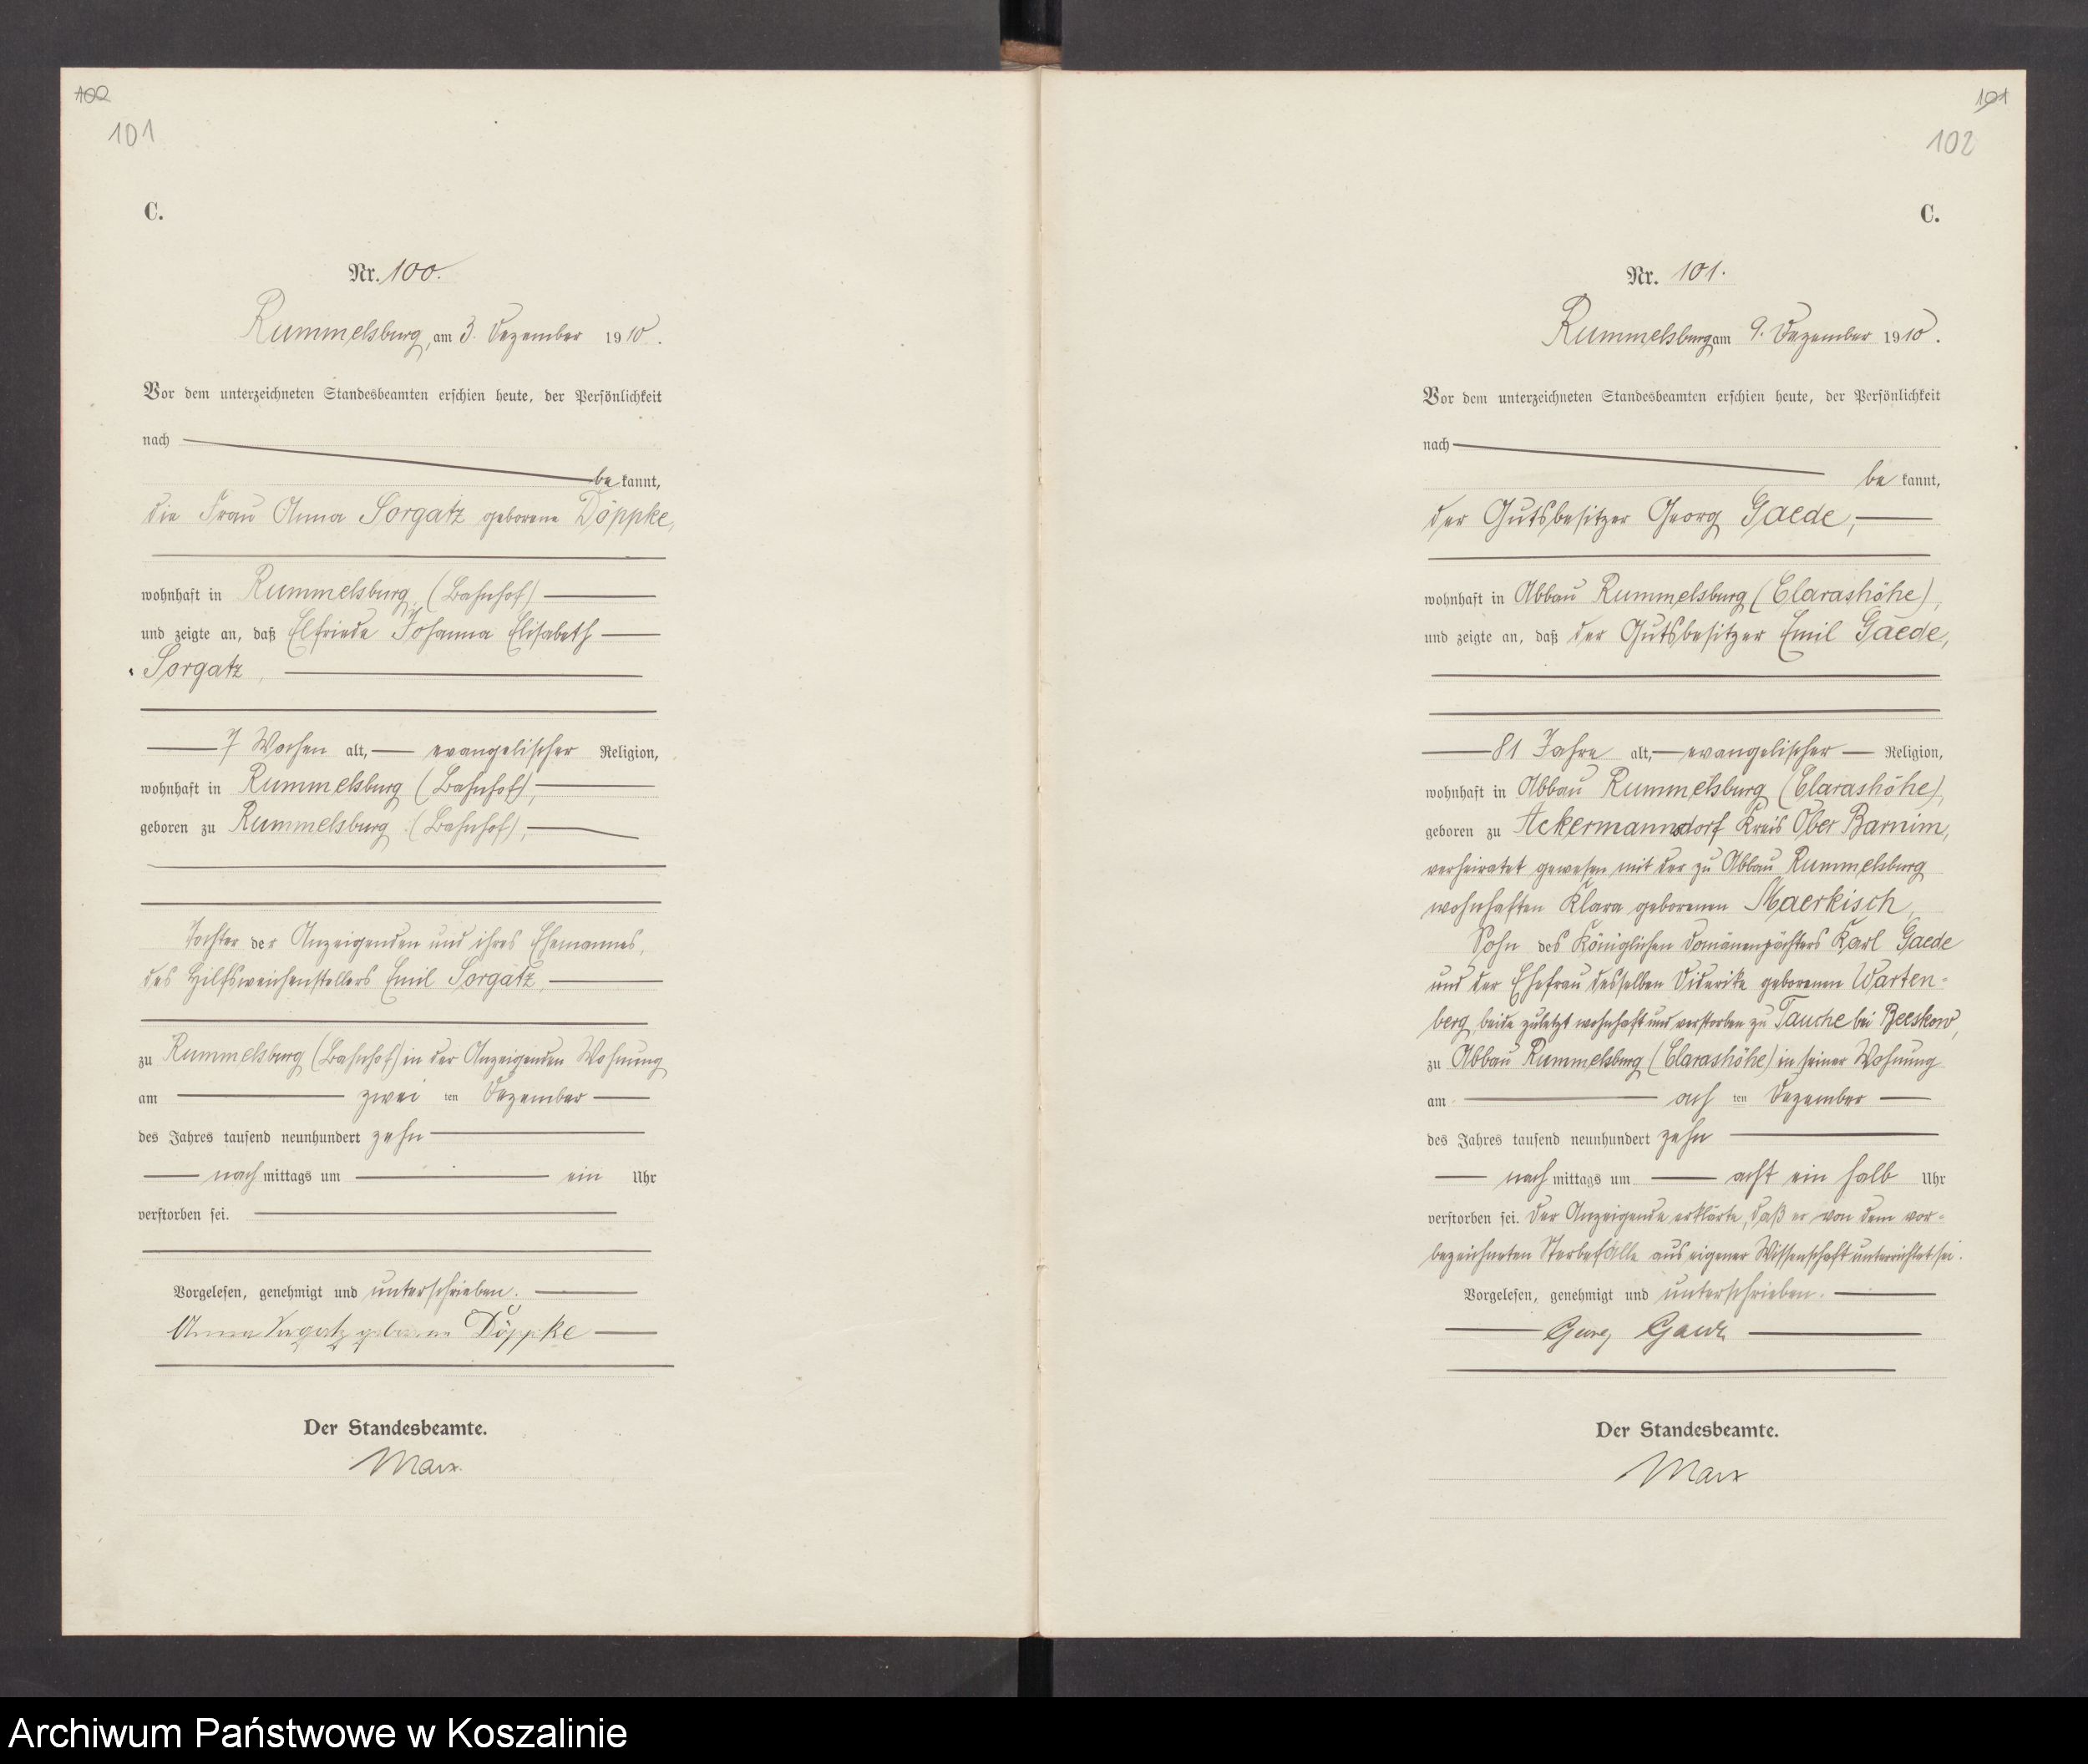 100
101
C.
Nr. 100.
Rummelsburg, am 3. Dezember 1910.
Vor dem unterzeichneten Standesbeamten erschien heute, der Persönlichkeit
nach
be kannt,
die Frau Anna Sorgatz geborene Döppke,
wohnhaft in Rummelsburg (Bahnhof)
und zeigte an, daß Elfriede Johanna Elisabeth
Sorgatz,
7 Wochen alt, evangelischer Religion,
wohnhaft in Rummelsburg (Bahnhof),
geboren zu Rummelsburg (Bahnhof),
Tochter der Anzeigenden und ihres Ehemannes,
des Hilfsweichenstellers Emil Sorgatz,
zu Rummelsburg (Bahnhof) in der Anzeigenden Wohnung
am zwei ten Dezember
des Jahres tausend neunhundert zehn
nach mittags um ein Uhr
verstorben sei.
Vorgelesen, genehmigt und unterschrieben.
Anna Sorgatz geborene Döppke
Der Standesbeamte.
Marx.
101
102
C.
Nr. 101.
Rummelsburg am 9. Dezember 1910.
Vor dem unterzeichneten Standesbeamten erschien heute, der Persönlichkeit
nach
be kannt,
der Gutsbesitzer Georg Gaede,
wohnhaft in Abbau Rummelsburg (Clarashöhe),
und zeigte an, daß der Gutsbesitzer Emil Gaede,
81 Jahre alt, evangelischer Religion,
wohnhaft in Abbau Rummelsburg (Clarashöhe),
geboren zu Ackermannsdorf Kreis Ober Barnim,
verheiratet gewesen mit der zu Abbau Rummelsburg
wohnhaften Klara geborenen Maerkisch,
Sohn des Königlichen Domänenpächters Karl Gaede
und der Ehefrau desselben geborenen Warten-
berg, beide zuletzt wohnhaft und verstorben zu Tauche bei Beeskow,
zu Abbau Rummelsburg (Clarashöhe) in seiner Wohnung
am ach ten Dezember
des Jahres tausend neunhundert zehn
nach mittags um acht ein halb Uhr
verstorben sei. Der Anzeigende erklärte, daß er von dem vor-
bezeichneten Sterbefalle aus eigener Wissenschaft unterrichtet sei.
Vorgelesen, genehmigt und unterschrieben.
Georg Gaede
Der Standesbeamte.
Marx
Archiwum Państwowe w Koszalinie